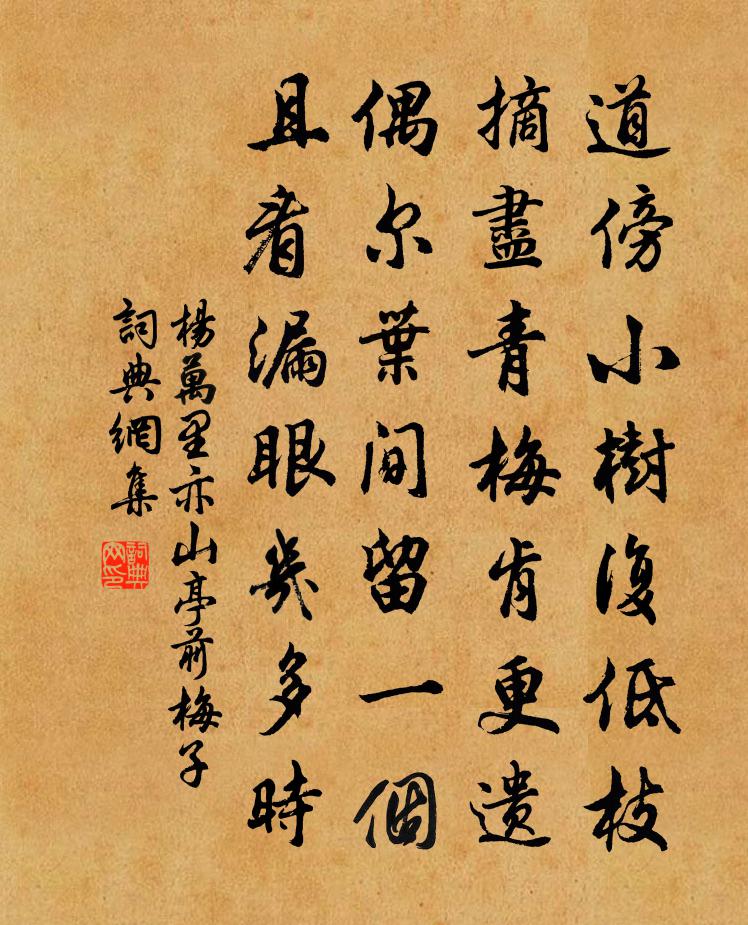 道傍小樹復低枝
摘盡青梅肯更遗
偶尔葉間留一個
且看漏眼幾多時
楊萬里亦山亭前梅子
詞典網集
詞典网印